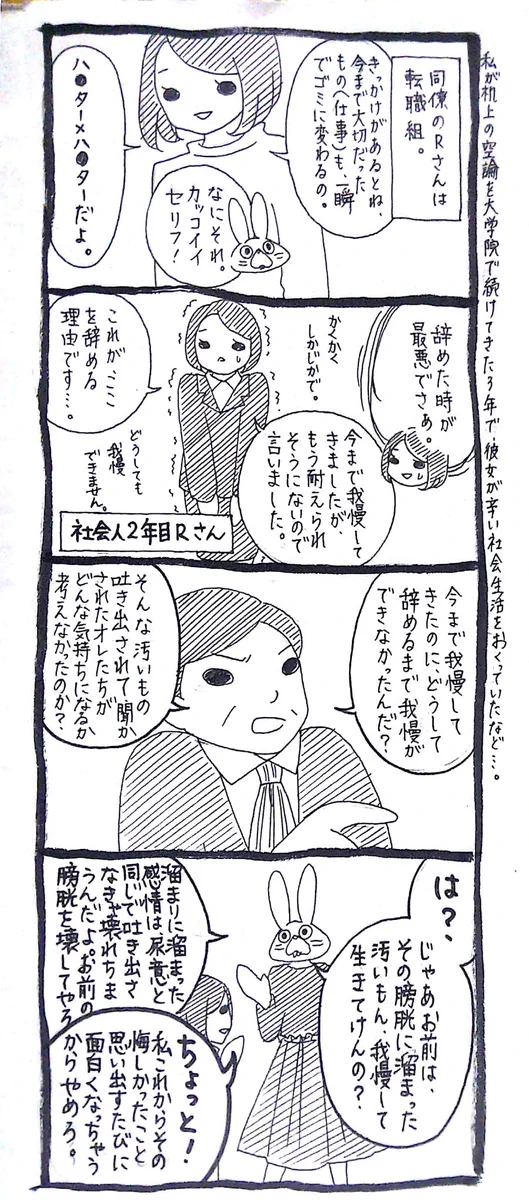 私が机上の空論を大学院で続けてきた3年で、彼女が辛い社会生活をおくっていたなど…。
同僚のRさんは
転職組。
きっかけがあるとね、
今まで大切だった
もの(仕事)も、一瞬
でゴミに変わるの。
なにそれ。
カッコイイ
セリフ!
ハ●ター×ハ●ターだよ。
辞めた時が
最悪でさぁ。
かくかく
しかじかで。
今まで我慢して
きましたが、
もう耐えられ
そうにないので
言いました。
これが、ミミ
を辞める
理由です…。
どうしても
我慢
できません。
社会人2年目Rさん
今まで我慢して
きたのに、どうして
辞めるまで我慢が
できなかったんだ?
そんな汚いもの
吐き出されて聞か
されたオレたちが
どんな気持ちになるか
考えなかったのか?
は?、
じゃあお前は、
その膀胱に溜まった
汚いもん、我慢して
生きてけんの?
溜まりに溜まった
感情は、尿意と
同じで吐き出さ
なきゃ壊れちま
うんだよ。お前の
膀胱を壊してやろ
ちょっと!
私これからその
悔しかったこと
思い出すたびに
面白くなっちゃう
からやめろ。